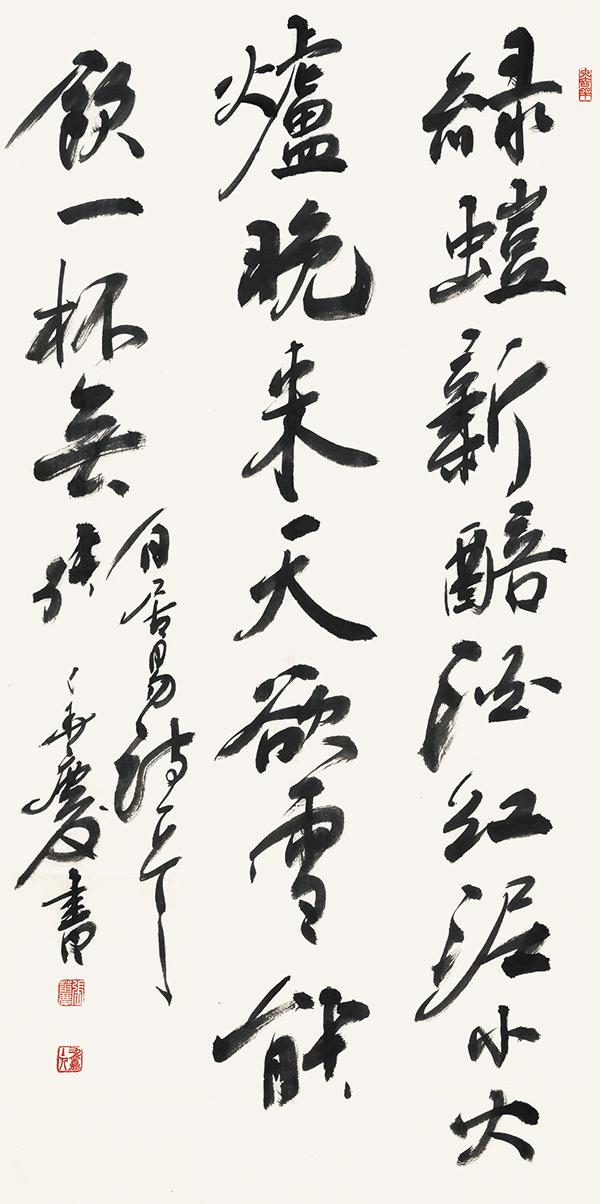 綠螘新醅酒紅泥小火
爐晚来天欲雪能
飲一杯無
白居易詩
華慶書